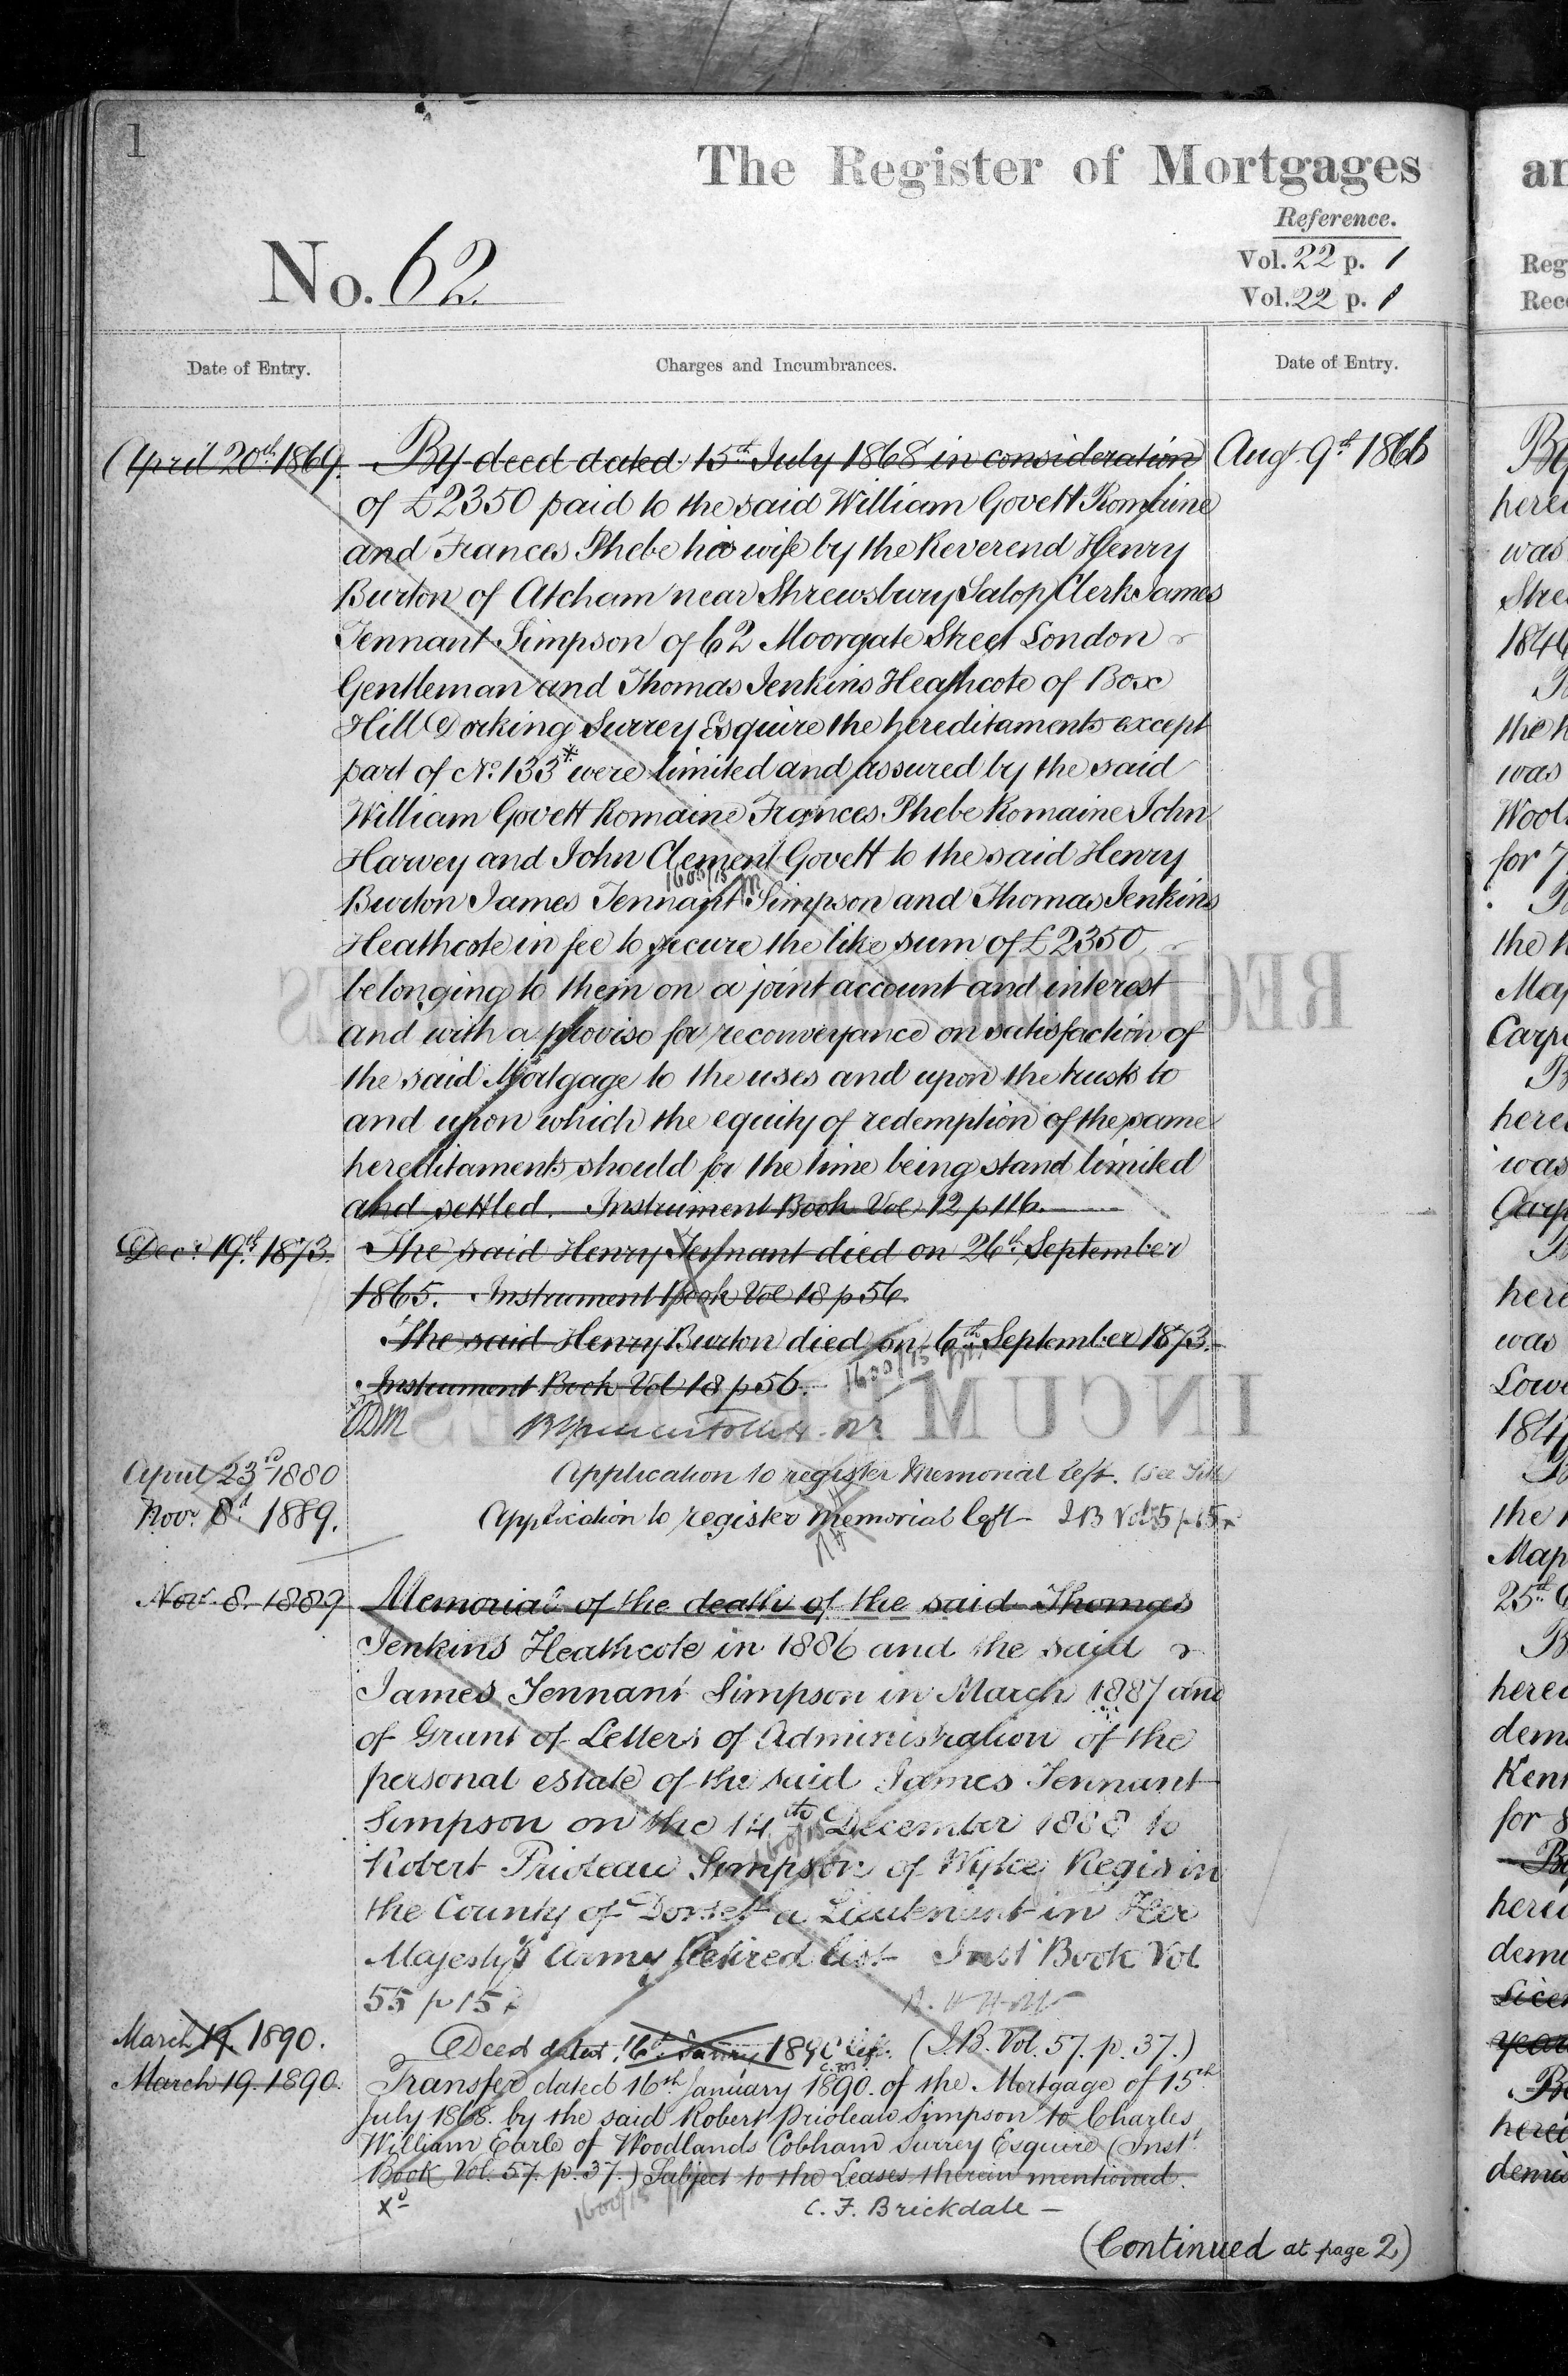 1
The Register of Mortgages
Reference.
No. 62
Vol. 22 p. 1
Vol. 22 p. 1
Date of Entry.
Charges and Incumbrances.
Date of Entry.
April 20th 1869.
By deed dated 15th July 1868 in consideration
of £2350 paid to the said William Govett Romaine
and Frances Phebe his wife by the Reverend Henry
Burton of Atcham near Shrewsbury Salop Clerk James
Tennant Simpson of 62 Moorgate Street London
Gentleman and Thomas Jenkins Heathcote of Box
Hill Dorking Surrey Esquire the hereditaments except
part of No. 133* were limited and assured by the said
William Govett Romaine Frances Phebe Romaine John
Harvey and John Clement Govett to the said Henry
1600/15
Burton James Tennant Simpson and Thomas Jenkins
Heathcote in fee to secure the like sum of £2350
belonging to them on a joint account and interest
and with a proviso for reconveyance on satisfaction of
the said Mortgage to the uses and upon the trusts to
and upon which the equity of redemption of the same
hereditaments should for the time being stand limited
and settled. Instrument Book Vol 12 p 116.
Decr 19th 1873.
The said Henry Tennant died on 26th September
1865. Instrument Book Vol 18 p 56.
The said Henry Burton died on 6th September 1873.
Instrument Book Vol 18 p 56.
1600/15
April 23rd 1880
Application to register Memorial left. (see
Novr 8th 1889.
Application to register memorial left I B Vol 55 p 15
Novr 8. 1889
Memorial of the death of the said Thomas
Jenkins Heathcote in 1886 and the said
James Tennant Simpson in March 1887 and
of Grant of Letters of Administration of the
personal estate of the said James Tennant
Simpson on the 14th December 1888 to
Robert Prioleau Simpson of Wyke Regis in
the County of Dorset a Lieutenant in Her
Majesty's Army Retired list Inst Book Vol
55 p 15
March 19. 1890.
Deed dated 16th January 1890 left. (I.B. Vol. 57. p. 37.)
March 19. 1890.
Transfer dated 16th January 1890. of the Mortgage of 15th
July 1868. by the said Robert Prioleau Simpson to Charles
William Earle of Woodlands Cobham Surrey Esquire (Inst
Book Vol. 57. p. 37.) Subject to the Leases therein mentioned.
1600/15
C. F. Brickdale
(Continued at page 2)
Augt 9th 1866
REGISTER OF MORTGAGES
INCUMBRANCES